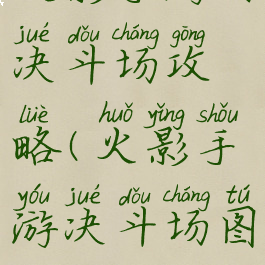 jué dǒu cháng gōng
决斗场攻
lüè huǒ yǐng shǒu
略(火影手
yóu jué dǒu cháng tú
游决斗场图